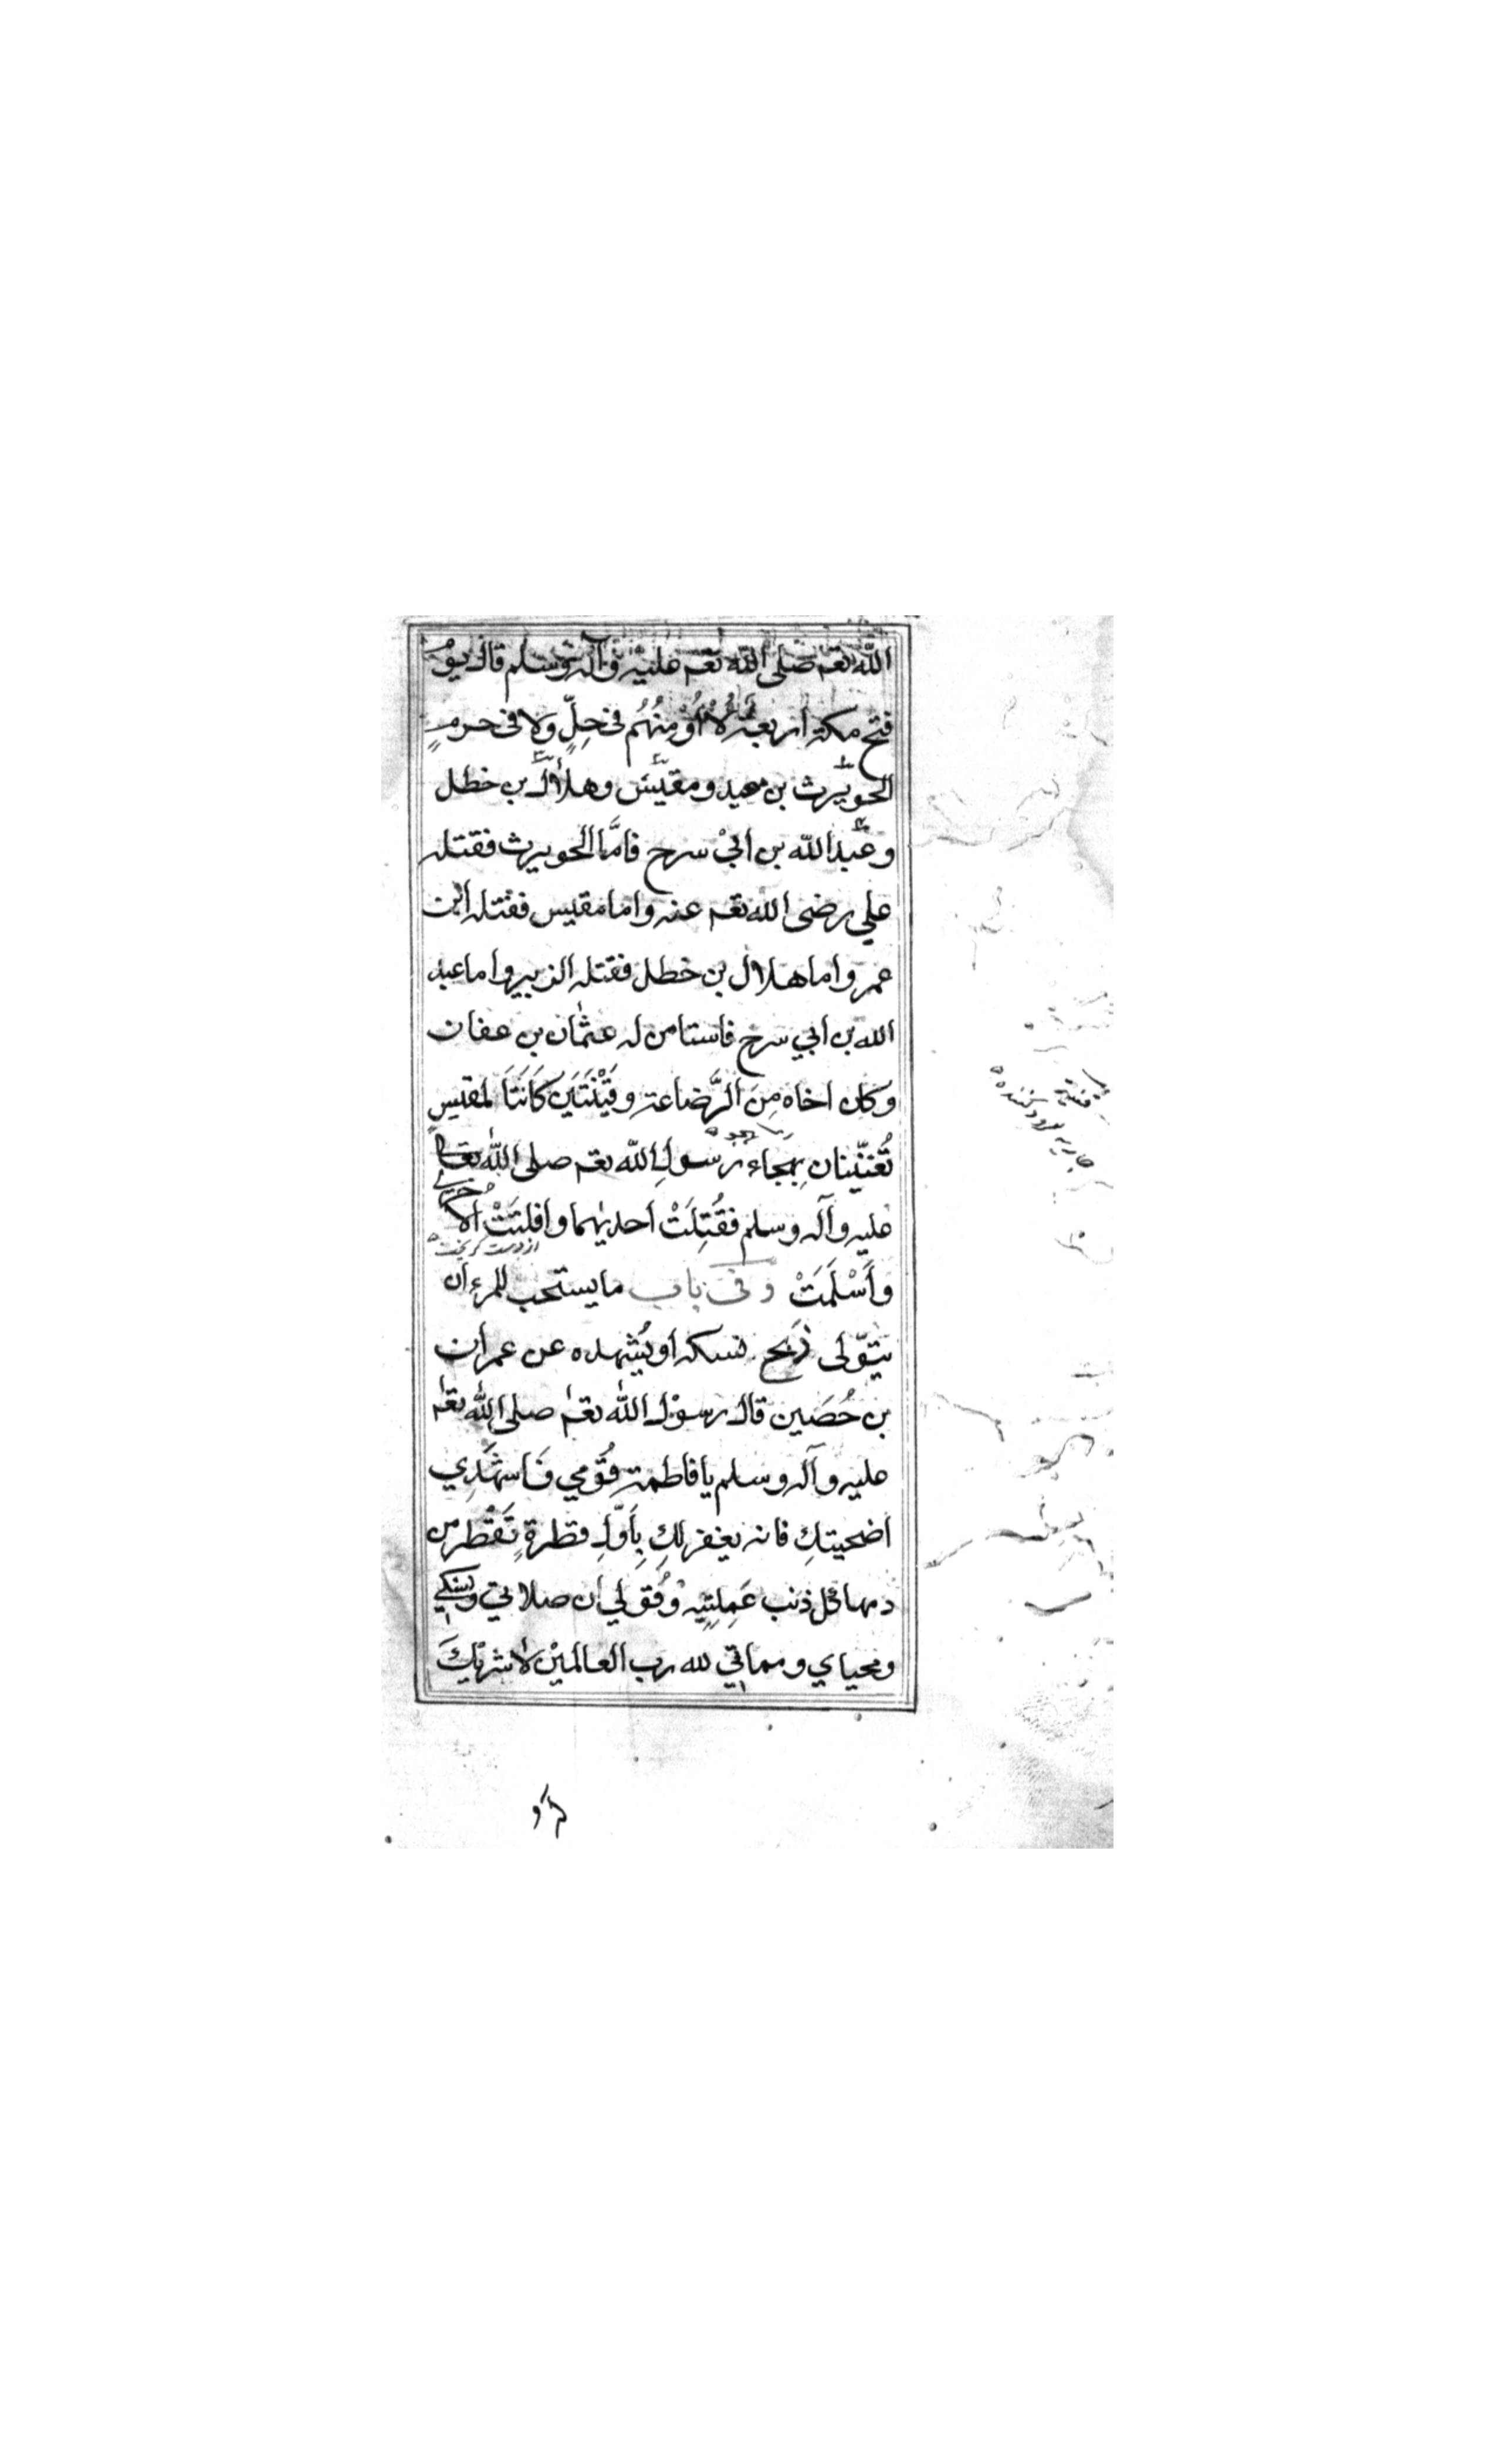 الله تعم صلى الله تعم عليه وآله وسلم قال يوم
فتح مكة اربعة لا أُومِنُهُم في حِلٍّ ولا في حرمٍ
الحويرث بن معيد ومقيس وهلال بن خطل
وعبد الله بن ابي سرح فامَّا الحويرث فقتله
علي رضى الله تعم عنه واما مقيس فقتله ابن
عمر واما هلال بن خطل فقتله الزبير واما عبد
الله بن ابي سرح فاستامن له عثمان بن عفان
وكان اخاه مِنَ الرَّضاعة وقَيْنَتَين كَانَتَا لمقيسٍ
تُغنّينان بهجاء رسولِ الله تعم صلى الله تعا
عليه وآله وسلم فقُتِلَتْ احديهما وافلتَتْ الاخري
از دست گریخت
وأَسْلَمَتْ وفى باب ما يستحب للمرء ان
يتوّلى ذبح نسكه او يُشهده عن عمران
بن حُصَين قال رسوْل الله تعم صلى الله تعم
عليه وآله وسلم يا فاطمة قُوْمي فَاشهَدِي
اضحيتكِ فانه يغفر لكِ بِأوّلِ قطرةٍ تَقْطر من
دمها كل ذنب عَمِلتِيه وقُولي ان صلاتي ونسكي
ومحياي ومماتي لله رب العالميْن لا شريْكَ
قينه
جاريه سرود كننده